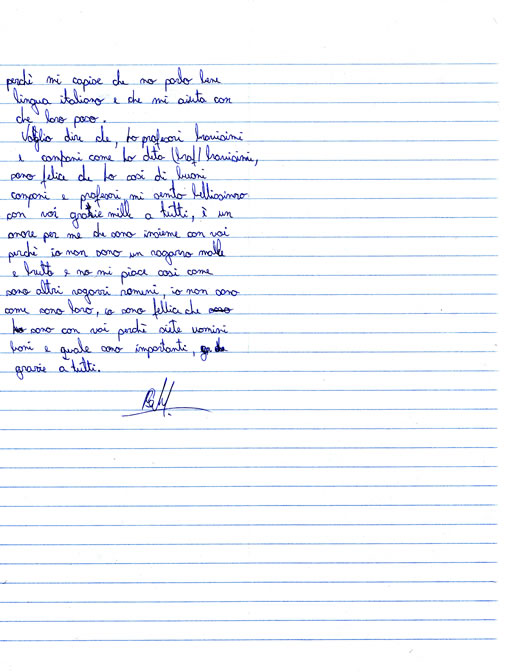 perchè mi capise che no parlo bene
lingua italiano e che mi aiuta con
che loro poso.
Voglio dire che, ho profesori bravisimi
e compani come ho dito (brafi bravisimi,
sono felice che ho cosi di buoni
compani e profesori, mi sento bellissimo
con voi grazie mille a tutti, è un
onore per me che sono insieme con voi
perchè io non sono un ragazzo malle
e brutto e no mi piace cosi come
sono altri ragazzi romeni, io non sono
come sono loro, io sono fellice che
sono con voi perchè siete uomini
boni e quale sono importanti,
grazie a tutti.